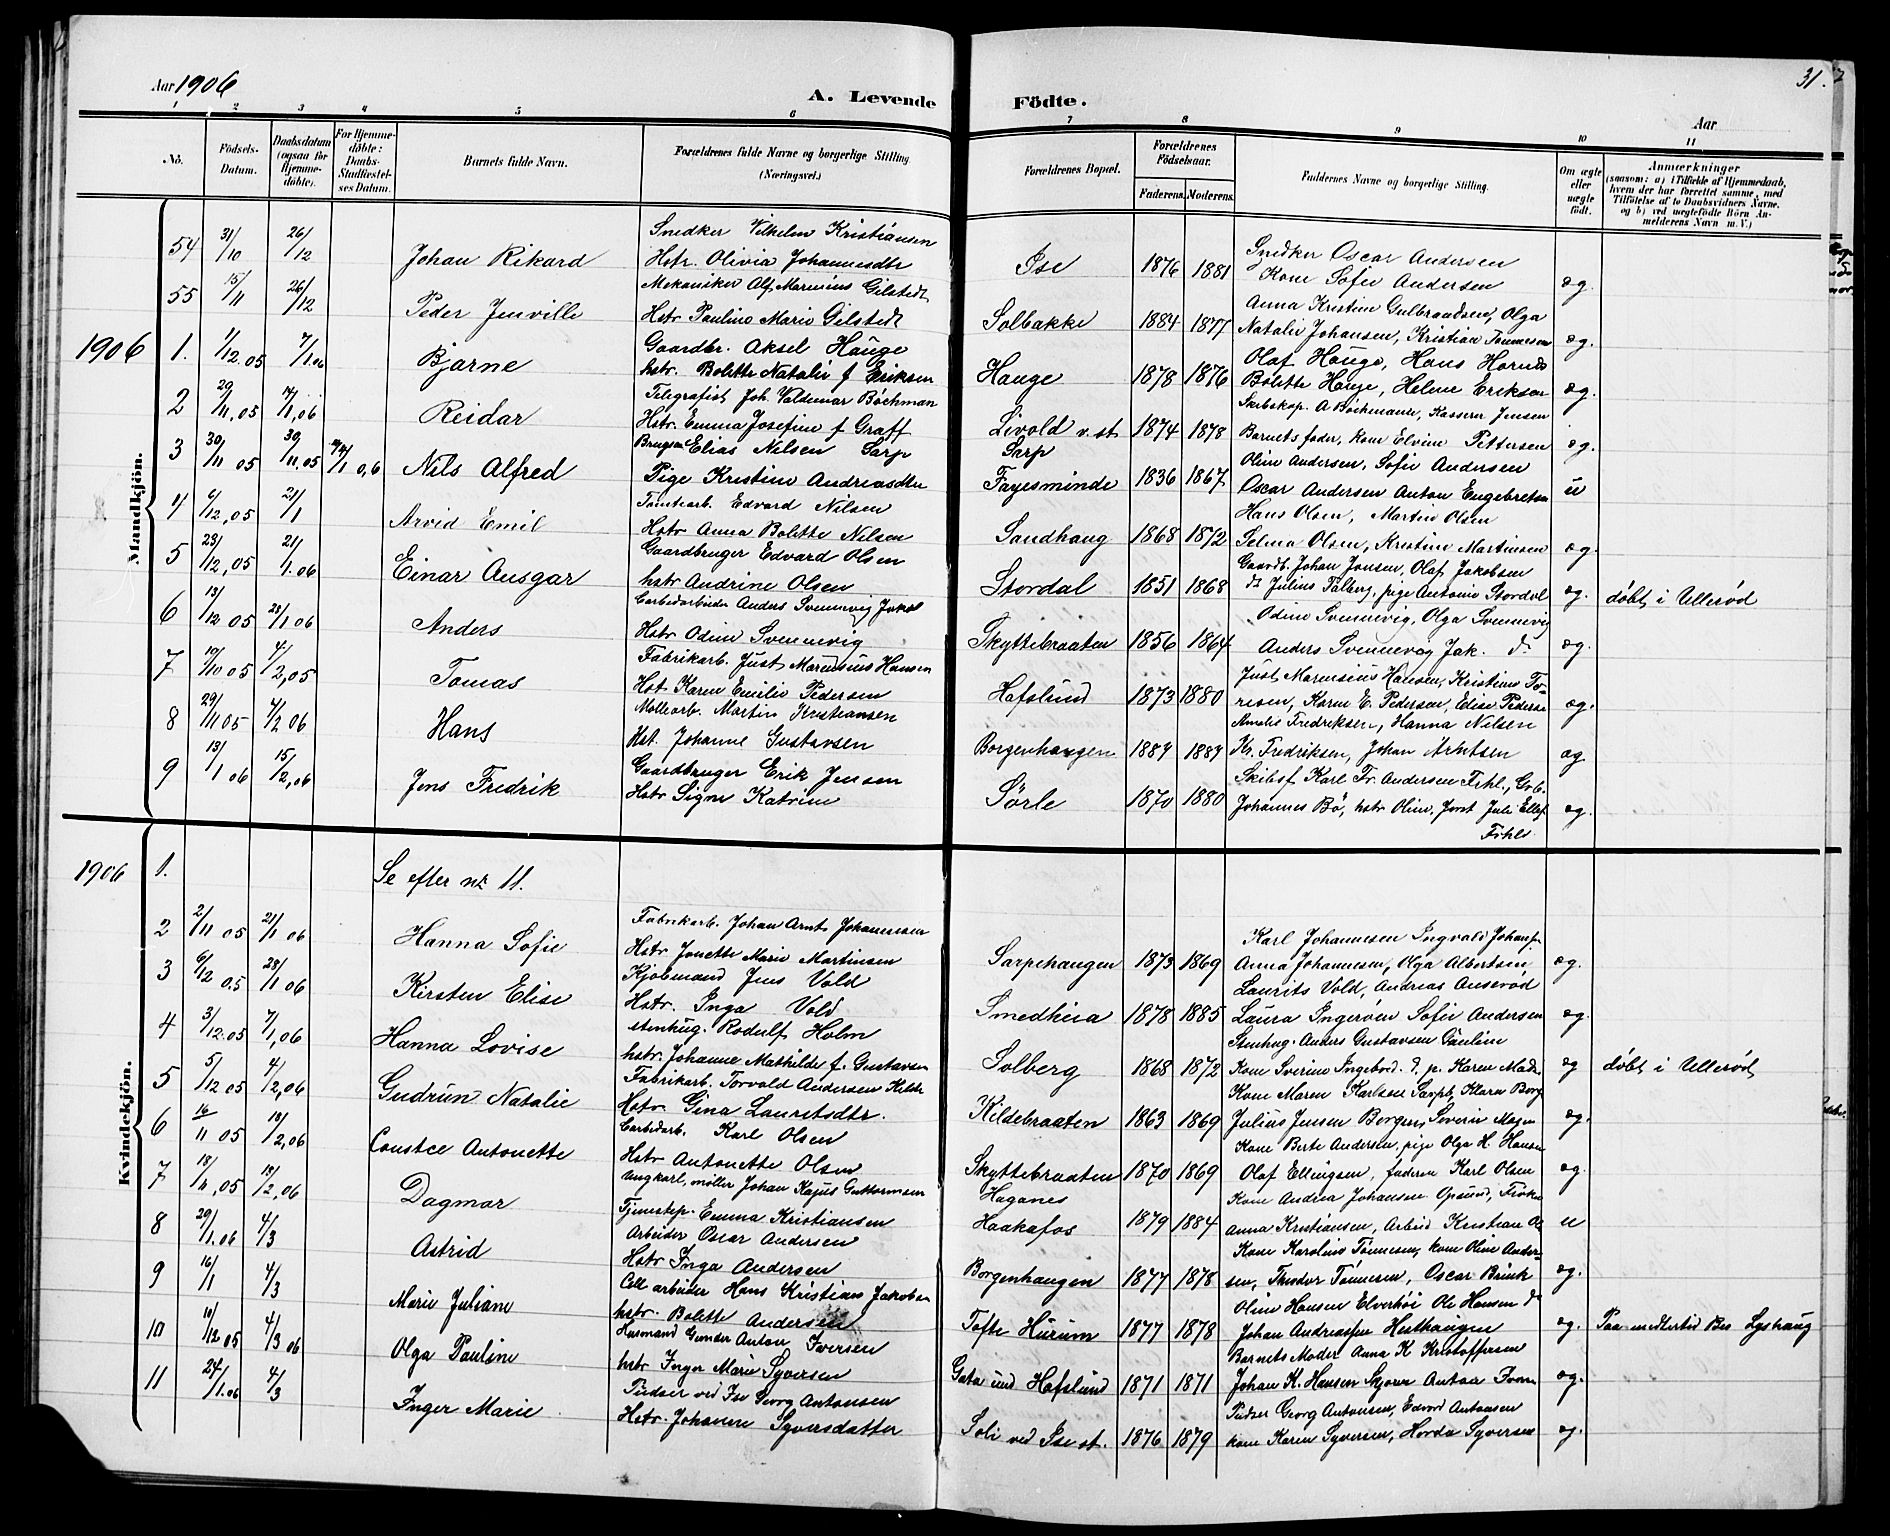 Aar 1906
A. Levende Födte.
Aar
31.
1 2 3 4 5 6 7 8 9 10 11
No.
Födsels-Datum.
Daabsdatum (ogsaa for Hjemme-döbte).
For Hjemme-döbte: Daabs-Stadfæstel-ses Datum.
Barnets fulde Navn.
Forældrenes fulde Navne og borgerlige Stilling (Næringsvei.)
Forældrenes Bopæl.
Forældrenes Födselsaar.
Faderens. Moderens.
Faddernes Navne og borgerlige Stilling.
Om ægte eller uægte födt.
Anmærkninger
(saasom: a) i Tilfælde af Hjemmedaab, hvem der har forrettet samme, med Tilföielse af to Daabsvidners Navne, og b) ved uægtefödte Börn An-melderens Navn m. V.)
Mandkjön.
54 31/10 26/12 Johan Rikard
Snedker Vilhelm Kristiansen
Hstr. Olivia Johannesdtr
Ise 1876 1881
Snedker Oscar Andersen
Kone Sofie Andersen
æg.
55 15/11 26/12 Peder Jenville
Mekaniker Alf Marinius Gilstedt
Hstr Pauline Marie Gilstedt
Solbakke 1884 1877
Anna Kristine Gulbrandsen, Olga
Natalie Johansen, Kristian Tönnesen
æg.
1906 1. 1/12 05 7/1 06 Bjarne
Gaardbr. Aksel Hauge
hstr. Bolette Natalie f Eriksen
Hauge 1878 1876
Olaf Hauge, Hans Hornes
Bolette Hauge, Helene Eriksen
æg.
2 29/11, 05 14/1, 06 Reidar
Telegrafist Joh Valdemar Bochman
Hstr. Emma Josefine f Graff
Livold v. st 1874 1878
Skibskap. A Bochmann, Kasserer Jensen
Barnets fader, kone Elvine Pettersen
æg.
3 30/11 05 30/11, 05 14/1 0,6 Nils Alfred
Elias Nilsen Sarp
Pige Kristine Andreasdtr
Sarp
Fayesminde 1836 1867
Oline Andersen, Sofie Andersen
Oscar Andersen Anton Engebretsen
u
4 6/12, 05 21/1 Arvid Emil
Tomtearb. Edvard Nilsen
Hstr Anna Bolette Nilsen
Sandhaug 1868 1872
Hans Olsen, Martin Olsen
Selma Olsen, Kristine Martinsen
æg.
5 23/12, 05 21/1. 06 Einar Ausgar
Gaardbruger Edvard Olsen
hstr Andrine Olsen
Stordal 1851 1868
Gaardb. Johan Jonsen, Olaf Jakobsen
do Julius Talberg, pige Antonie Stordal
æg. döbt i Ullerød
6 13/12 05 28/1 06 Anders
Anders Svennevig Jakob
Hstr Odine Svennevig
Skyttebraaten 1856 1864
Odine Svennevig, Olga Svennevig
Anders Svennevig Jak. do
æg.
7 19/10 05 4/2, 05 Tomas
Fabrikarb. Just Marensius Hansen
Hst Karen Emilie Pedersen
Hafslund 1873 1880
Just Marensius Hansen, Kristian To-
resen, Karen E. Pedersen, Elise Pederse
æg.
8 29/11 05 4/2 06 Hans
Möllearb. Martin Kristiansen
Hst. Johanne Gustavsen
Borgenhaugen 1884 1884
Amalie Fredriksen, Hanna Nilsen
Kr. Fredriksen, Johan Arntsen
æg
9 13/1 06 15/2, 06 Jens Fredrik
Gaardbruger Erik Jensen
Hstr Signe Katrine
Sörle 1870 1880
Skibsf. Karl Fr. Andersen Frhl., Grb.
Johannes Bö, hstr Oline, Jomf Julie Ellef
Frhls
æg.
Kvindekjön.
1906 1. Se efter nr 11.
2 2/11 05 21/1 06 Hanna Sofie
Fabrikarb. Johan Arnt Johannesen
Hstr Jonette Marie Martinsen
Sarpehaugen 1873 1869
Karl Johannesen Ingvald Johans.
Anna Johannesen, Olga Albertsen
æg.
3 6/12 05 28/1 06 Kirsten Elise
Kjöbmand Jens Vold
Hstr. Inga Vold
Smedheia 1878 1885
Laurits Vold, Andreas Anserød
Laura Ingeröen Sofie Andersen
æg.
4 3/12.05 7/1,06 Hanna Lovise
stenhug. Rodulf Holm
hstr. Johanne Mathilde f. Gustavsen
Solberg 1868 1872
Stenhug. Anders Gustavsen Pauline
Kone Severine Ingebord. d. p. Karen Mad.
æg döbt i Ullerød
5 5/12 05 4/2,06 Gudrun Natalie
Fabrikarb. Torvald Andersen Kilde
Hstr. Gina Lauritsdtr.
Kildebraaten 1863 1869
Kone Maren Karlsen Sarpb, Klara Borg
Julius Jensen Borgen, Severin Magn
æg.
6 16/11 05 18/2,06 Constce Antonette
Karl Olsen
Hstr Antonette Olsen
Skyttebraaten 1870 1869
Kone Berte Andersen, pige Olga H. Hansen
Olaf Ellingsen, faderen Karl Olsen
æg.
7 18/11,05 18/2,06 Dagmar
ungkarl, möller Johan Kajus Guttormsen
Tjenestep. Emma Kristiansen
Haganes
Haakafos 1879 1884
Kone Andrea Johansen Opsund,
Anna Kristiansen, Arbeid Kristian Ol
u
8 29/1.06 4/3 Astrid
Arbeider Oscar Andersen
Hstr Inga Andersen
Borgenhaugen 1877 1878
Kone Karoline Tönnesen, kone Oline Ander-
sen, Theodor Tönnesen, Oscar Brink
æg.
9 16/1 4/3 Marie Juliane
Cell arbeider Hans Kristian Jakobsen
hstr. Bolette Andersen
Tofte Hurum 1877 1878
Oline Hansen Elverhöi Ole Hansen do
Johan Andreassen Hesthaugen
æg. Paa midlertid Bes Lyshaug
10 10/12 05 4/3 06 Olga Pauline
Husmand Gunder Anton Iversen
hstr Inger Marie Syversen
Gata und Hafslund 1871 1871
Barnets Moder Anna K Kristoffersen
Johan K. Hansen Skjøren Anton Ivers.
æg.
11 24/1.06 4/3 Inger Marie
Pudser ved Ise Georg Antonsen
Hstr. Johanne Syversdatter
Soli ved Ise st. 1876 1879
Pudser Georg Antonsen, Edvard Antonsen
kone Karen Syversen, Hovda Syversen
æg.